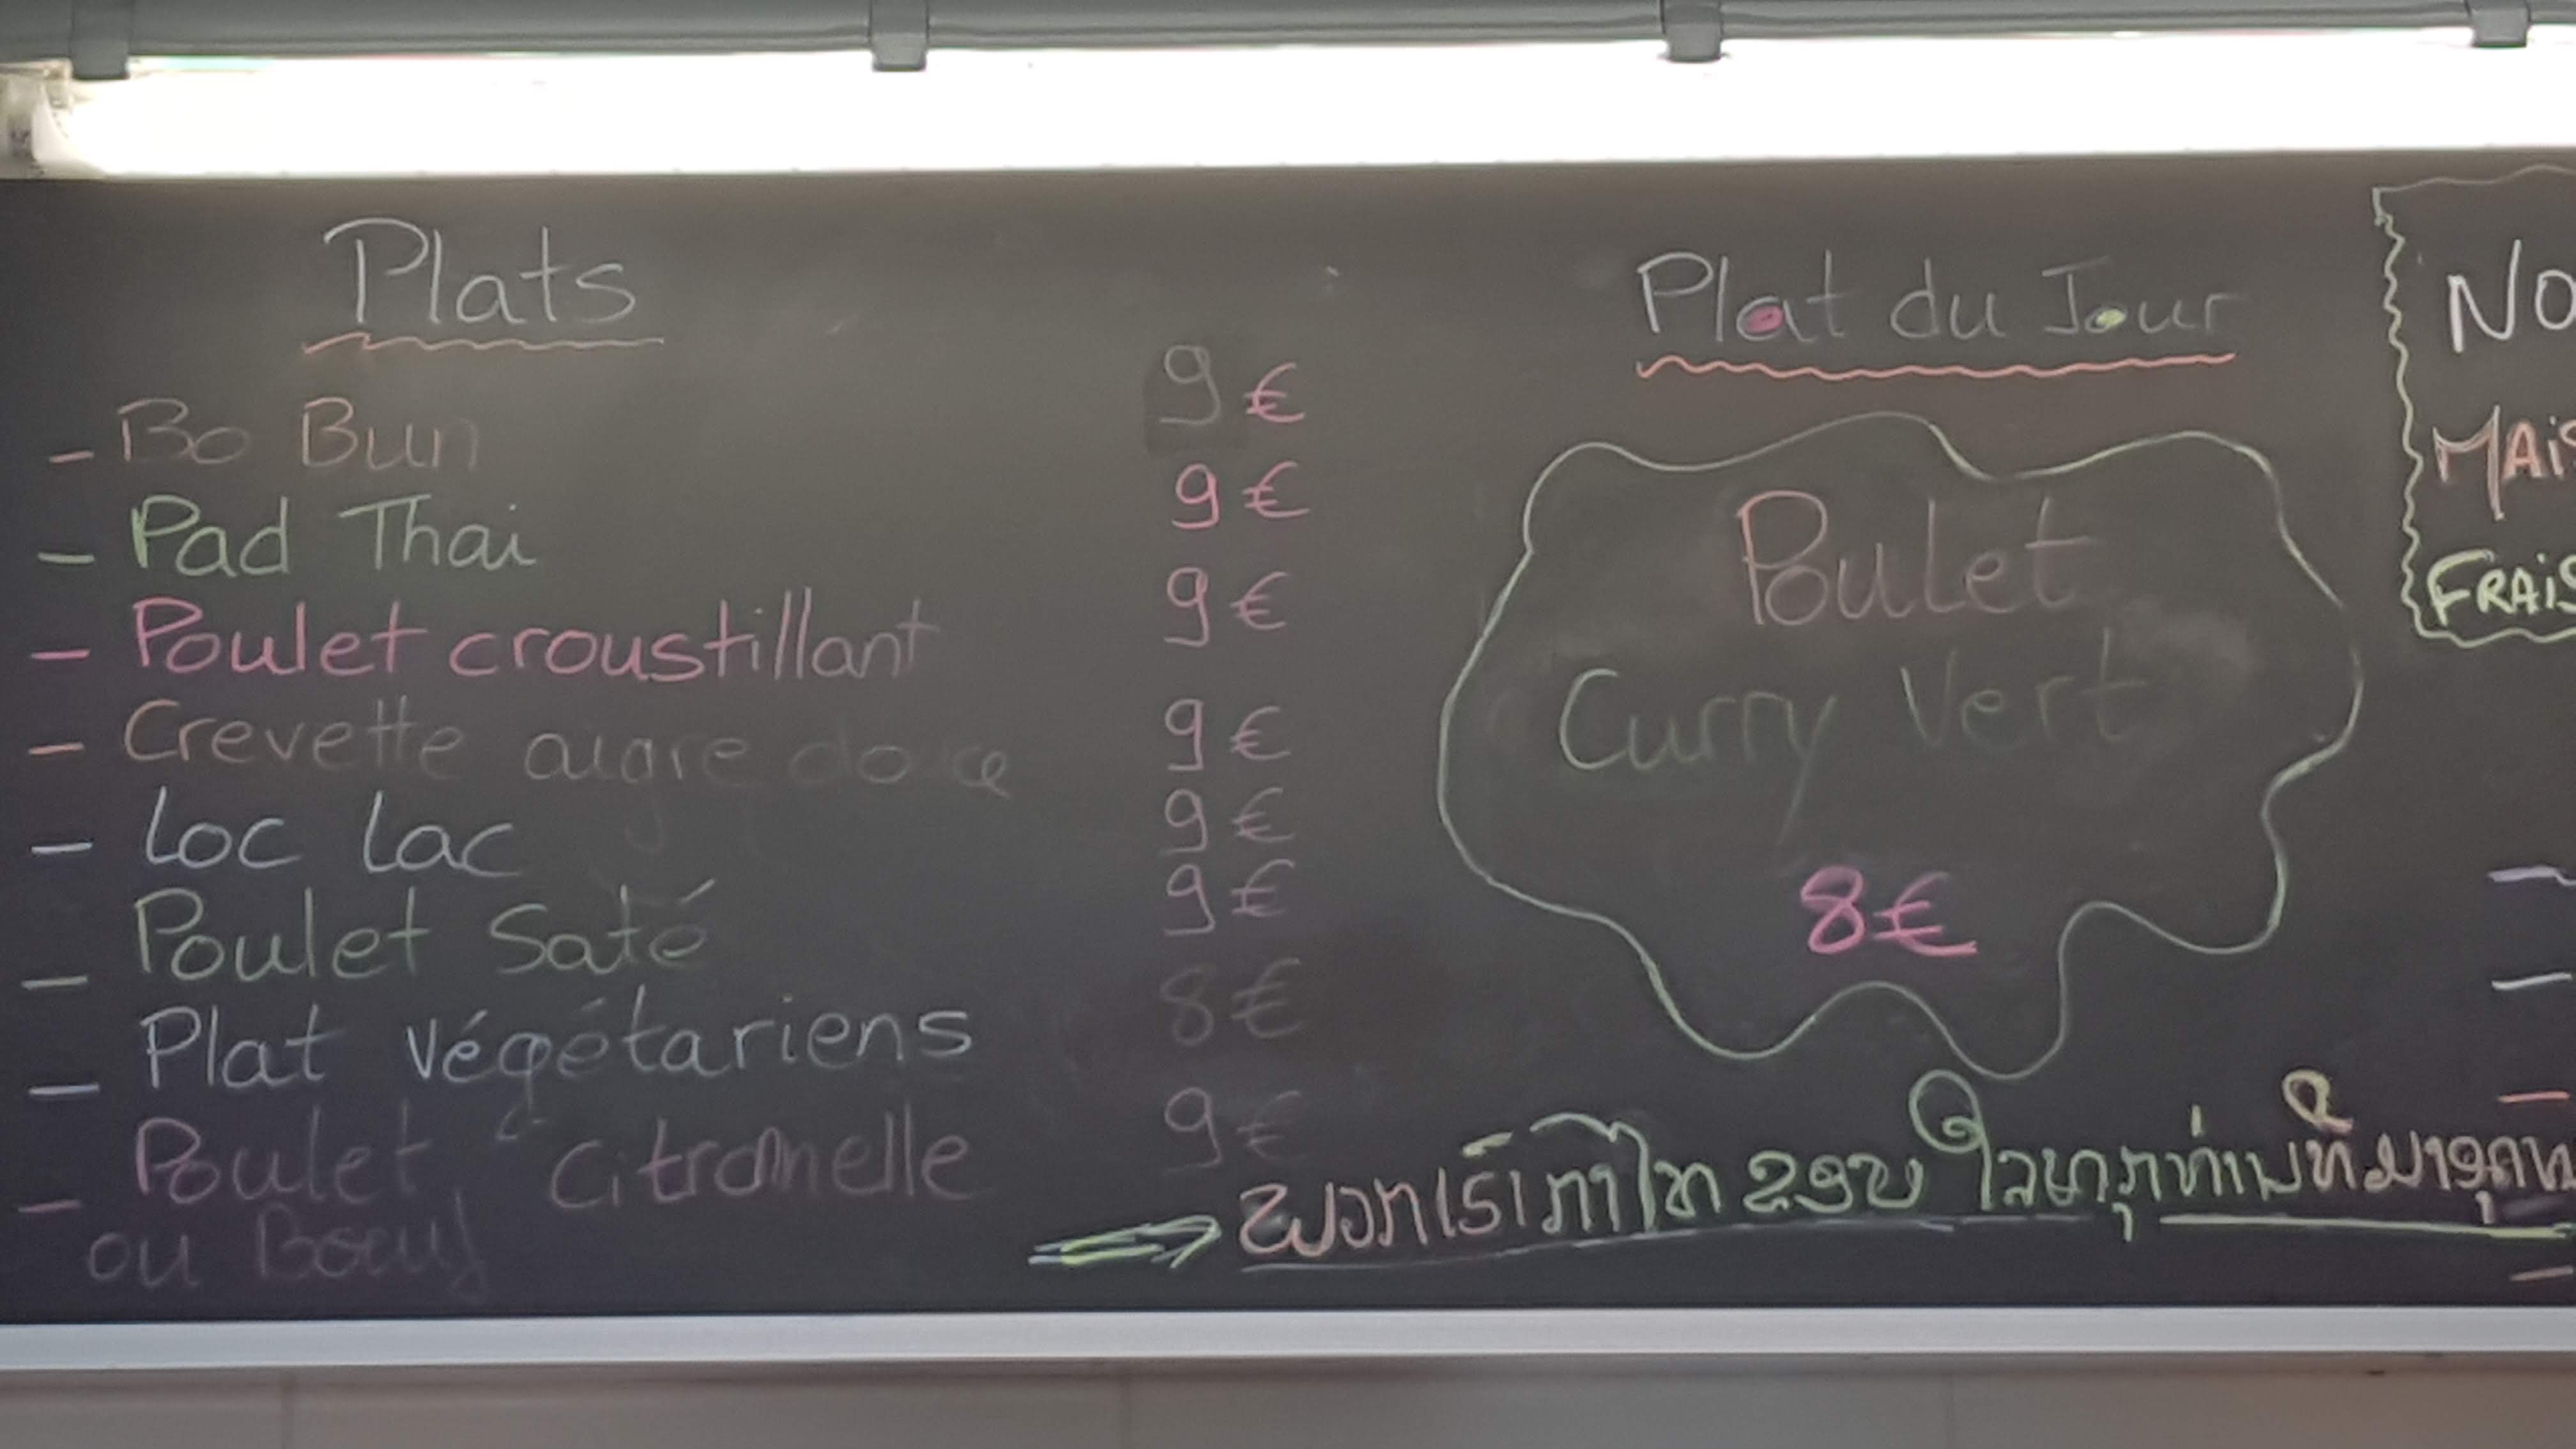 Plats
- Bo Bun 9 €
- Pad Thai 9 €
- Poulet croustillant 9 €
- Crevette aigre douce 9 €
- Loc Lac 9 €
- Poulet Saté 9 €
- Plat végétariens 8 €
- Poulet citronnelle 9 €
ou Boeuf
Plat du Jour
Poulet
Curry Vert
8 €
NO
MAIS
FRAIS